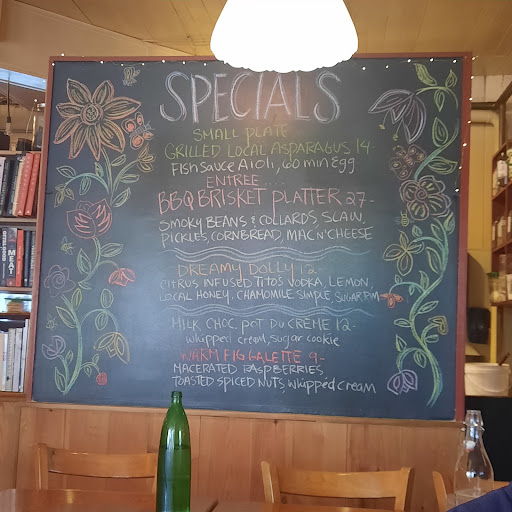 SPECIALS
SMALL PLATE
GRILLED LOCAL ASPARAGUS 14-
FISH SAUCE AIOLI, 60 min Egg
ENTREE....
BBQ BRISKET PLATTER 27-
SMOKY BEANS & COLLARDS, SLAW,
PICKLES, CORNBREAD, MAC N' CHEESE
DREAMY DOLLY 12-
CITRUS INFUSED TITOS VODKA, LEMON,
LOCAL HONEY, CHAMOMILE SIMPLE, SUGAR RIM
MILK CHOC. POT DU CRÈME 12-
whipped cream, sugar cookie
WARM FIG GALETTE 9-
MACERATED RASPBERRIES,
TOASTED SPICED NUTS, whipped cream
MEAT